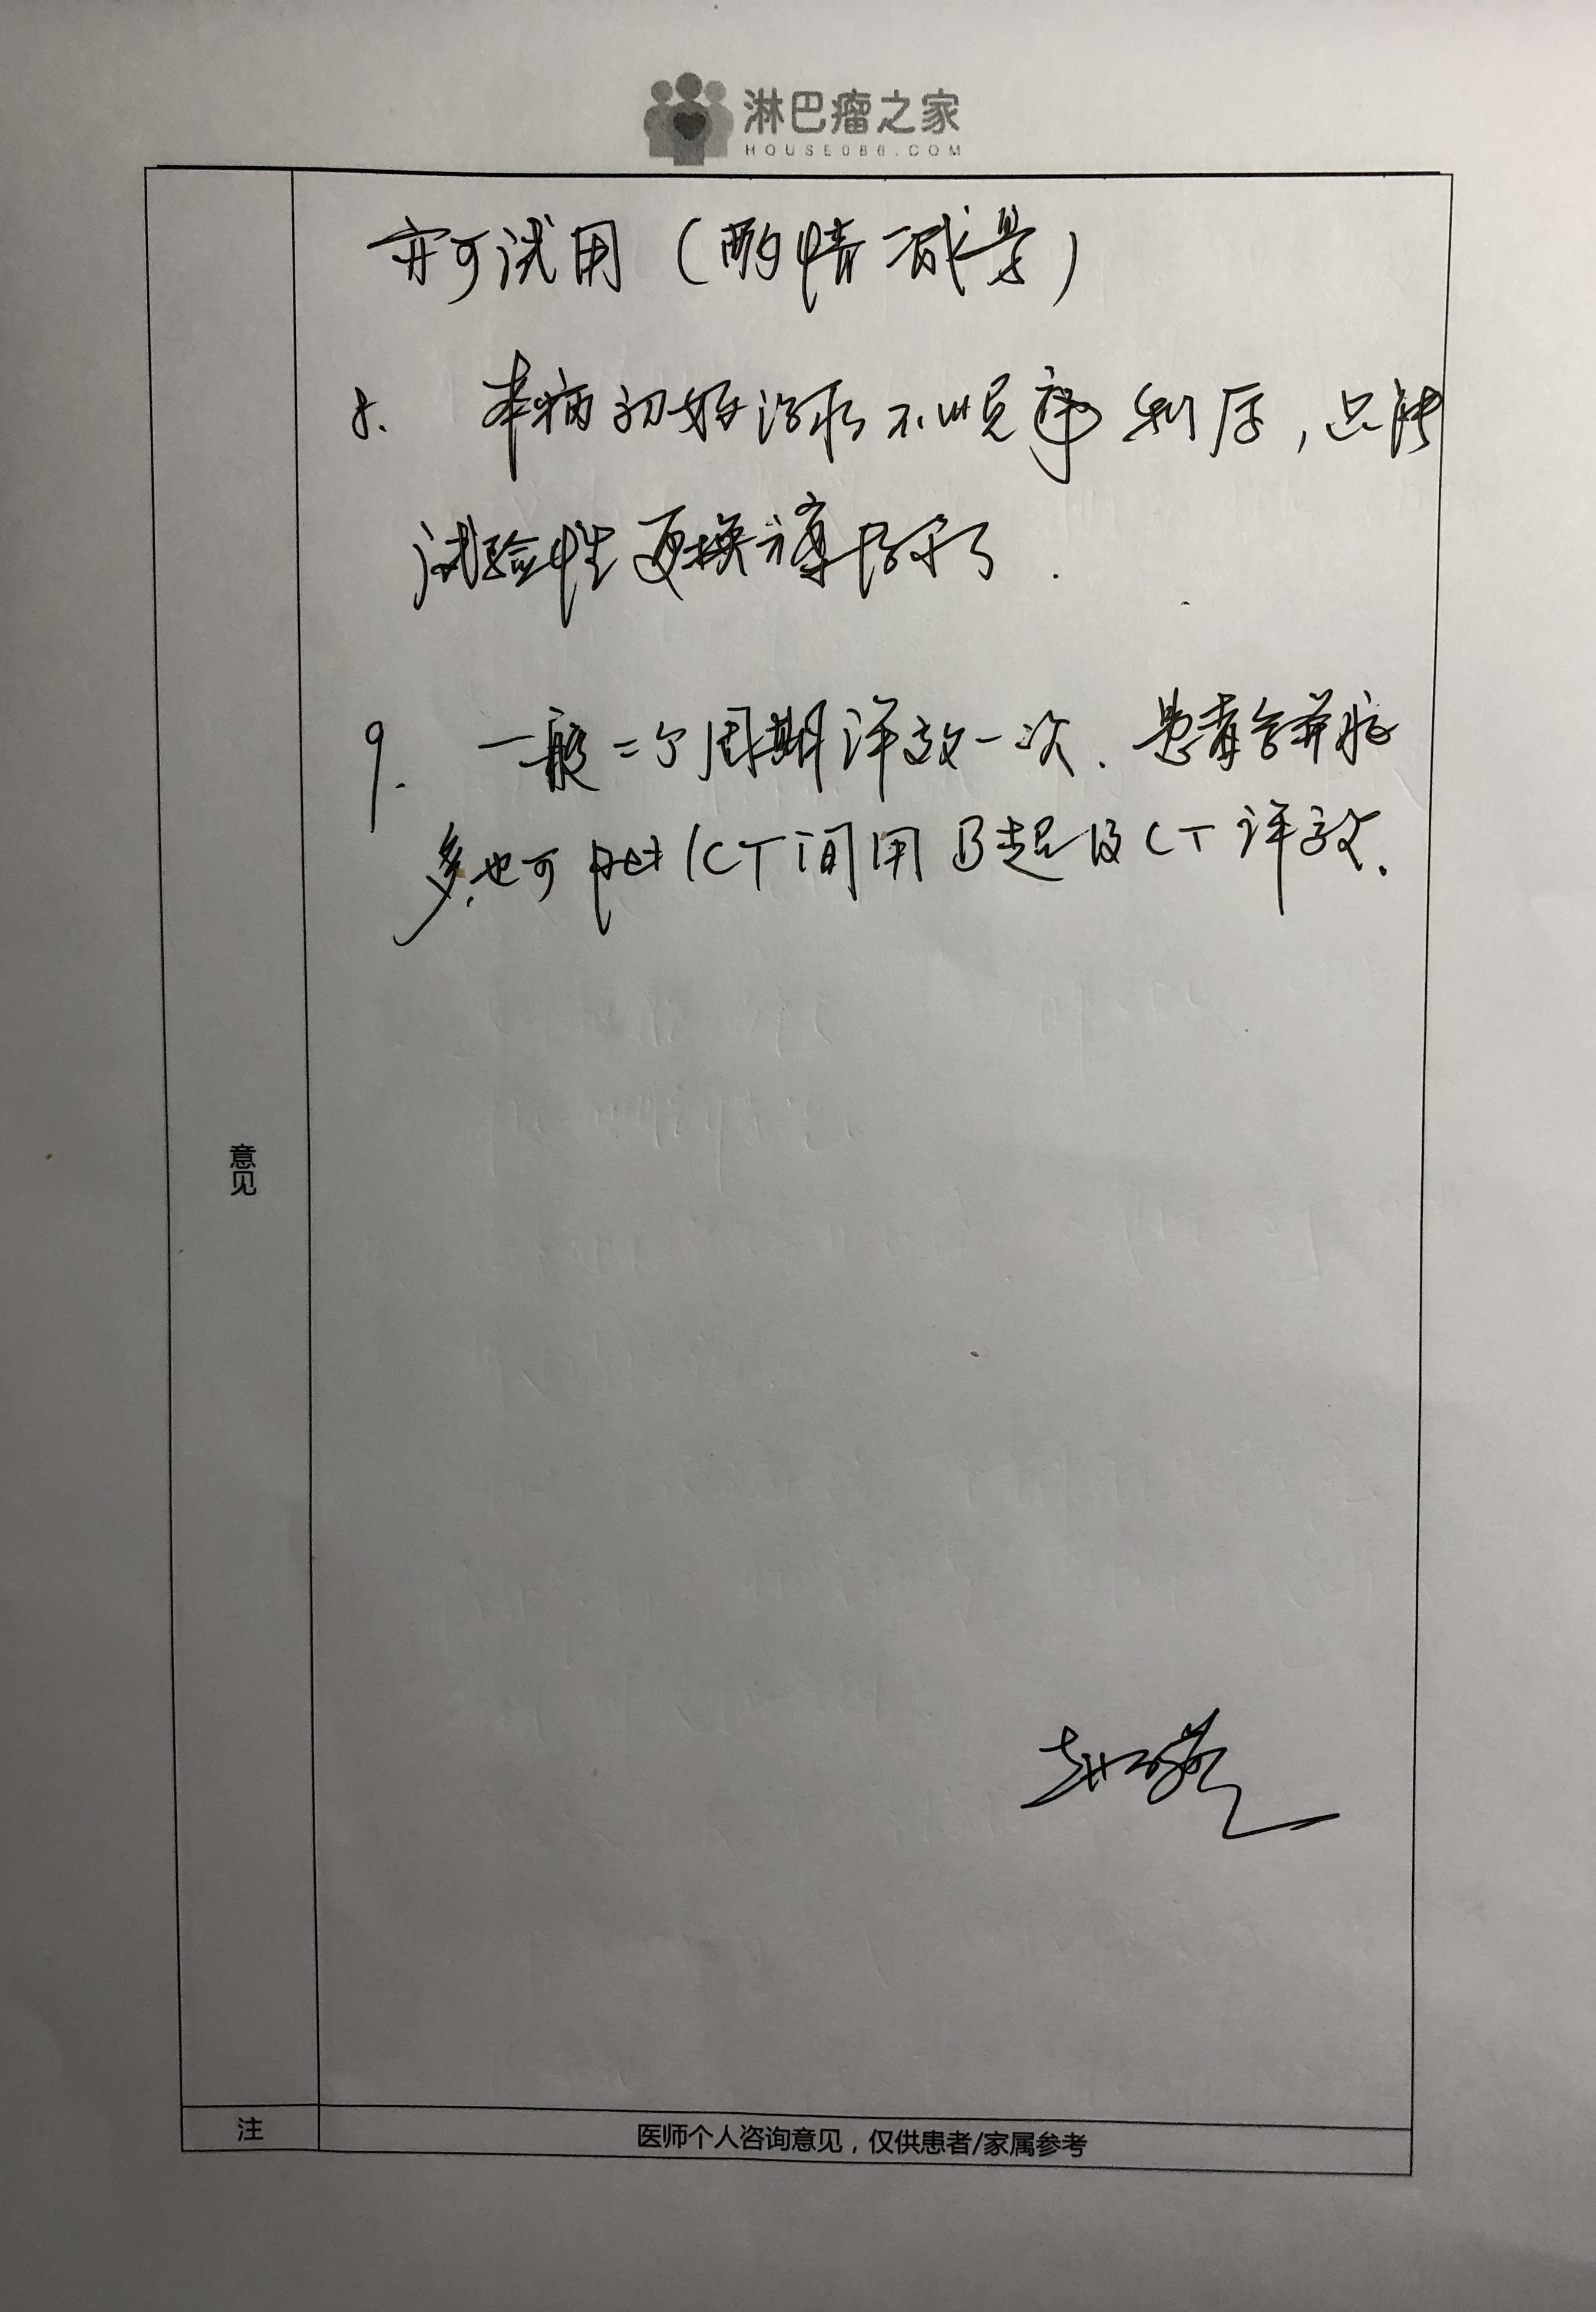 淋巴瘤之家
HOUSE086.COM
亦可试用（酌情减量）
8. 本病初始治疗不顺利后，只能
试验性更换方案治疗了.
9. 一般二个周期评效一次. 患者合并症
多.也可pet/CT间用B超及CT评效.
意见
注
医师个人咨询意见，仅供患者/家属参考